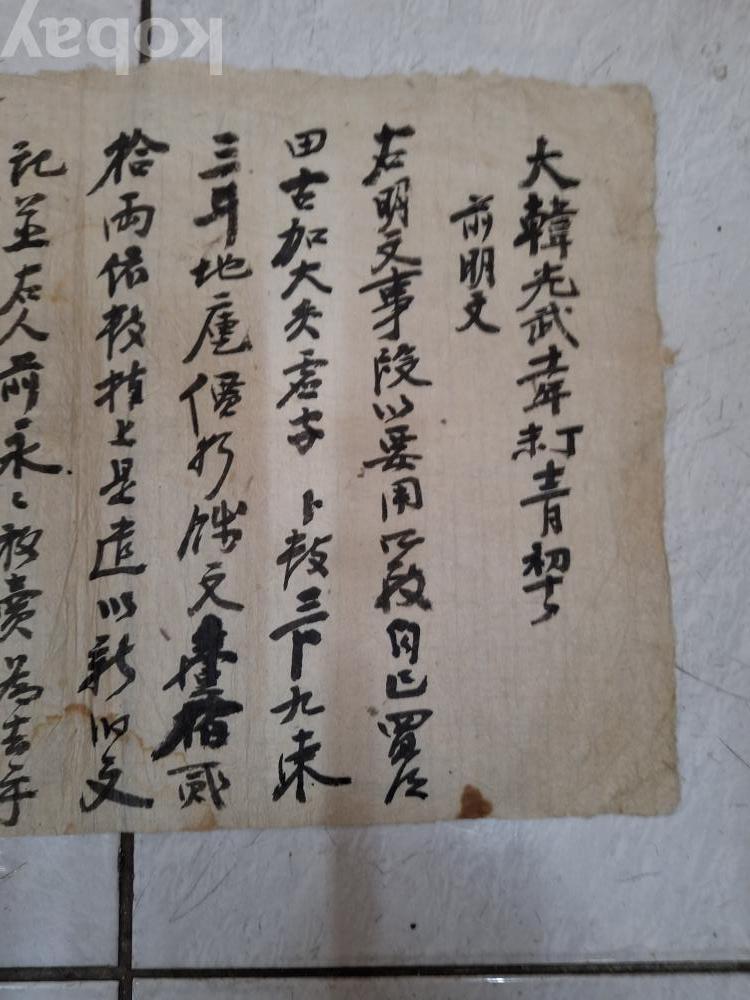 大韓光武十一年丁未十一月初十日
前明文
右明文事段以要用所致自己買得
田古加大員虛字 卜數三卜九束
三斗地庫價折錢文壹百拾貳
拾兩依數捧上是遣以新旧文
記並右人前永〻放賣爲去乎
kobay